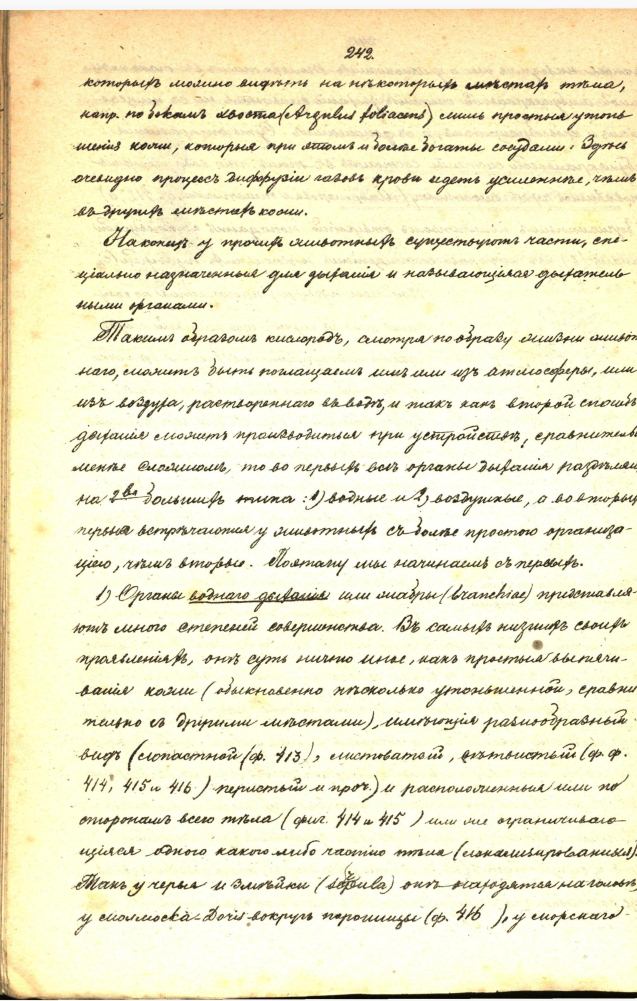 242.
которыхъ можно видѣть на нѣкоторыхъ мѣстахъ тѣла,
напр. по бокамъ хвоста (Argulus foliaceus) лишь простыя утонь
шенія кожи, которыя при этомъ и болѣе богаты сосудами. Здѣсь
очевидно процессъ диффузіи газовъ крови идетъ усиленнѣе, чѣмъ
въ другихъ мѣстахъ кожи.
Наконецъ у прочихъ животныхъ существуютъ части, спе-
ціально назначенныя для дыханія и называющіяся дыхатель-
ными органами.
Такимъ образомъ кислородъ, смотря по образу жизни живот
наго, можетъ быть поглощаемъ имъ или изъ атмосферы, или
изъ воздуха, раствореннаго въ водѣ, и такъ какъ второй способъ
дыханія можетъ производиться при устройствѣ, сравнительно
менѣе сложномъ, то во первыхъ всѣ органы дыханія раздѣляю
на 2ва большихъ типа: 1) водные и 2) воздушные, а во вторыхъ
первые встрѣчаются у животныхъ съ болѣе простою организа-
ціею, чѣмъ вторые. Поэтому мы начинаемъ съ первыхъ.
1) Органы воднаго дыханія или жабры (branchiae) представля-
ютъ много степеней совершенства. Въ самыхъ низшихъ своихъ
проявленіяхъ, онѣ суть ничто иное, какъ простыя выпячи-
ванія кожи (обыкновенно нѣсколько утоньшенной, сравни
тельно съ другими мѣстами), имѣющія разнообразный
видъ (лопастной (ф. 413), листоватый, вѣтвистый (ф. ф.
414, 415 и 416) перистый и проч.) и расположенныя или по
сторонамъ всего тѣла (фиг. 414 и 415) или же ограничиваю
щіяся одного какого либо частію тѣла (локализированныя).
Такъ у червя и змѣйки онѣ находятся на головѣ,
у моллюска Doris вокругъ порошицы (ф. 416), у морскаго